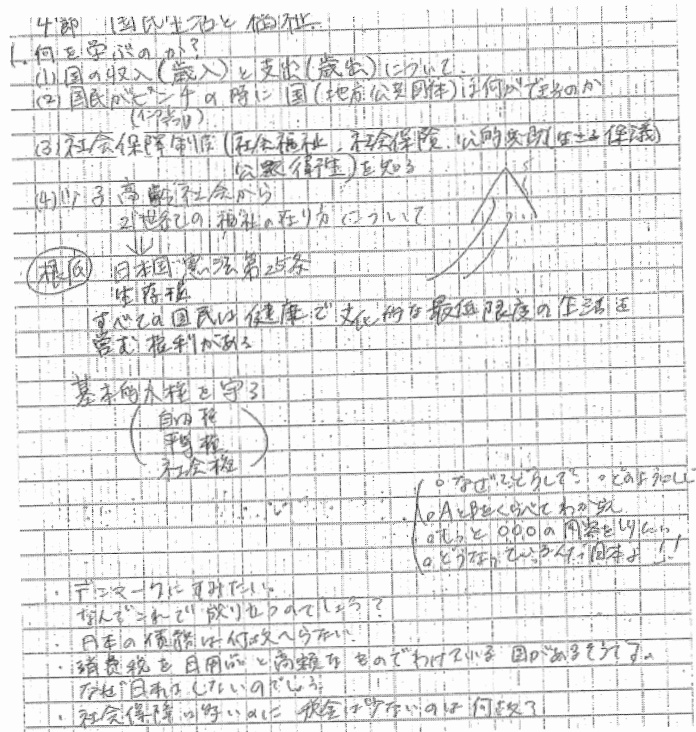 4部 国民生活と福祉
1. 何を学ぶのか?
(1) 国の収入(歳入)と支出(歳出)について
(2) 国民がピンチの時に国(地方公共団体)は何ができるのか
(行為)
(3) 社会保障制度(社会福祉、社会保険、公的扶助(生きる保護)
公衆衛生)を知る
(4) 少子高齢社会から
21世紀の福祉の在り方について
根底 日本国憲法第25条
生存権
すべての国民は健康で文化的な最低限度の生活を
営む権利がある
基本的人権を守る
自由権
平等権
社会権
。なぜ どうして 。どのようにし
。AとBをくらべてわかった
。もっと〇〇〇の内容を知りたい
。どうなっている 日本よ!!
・デンマークにすみたい。
なんでこれで成り立つのでしょう?
・日本の債務は何故へらない
・消費税を日用品と高額なものでわけている国があるそうです。
なぜ日本はしないのでしょう
・社会保障は 税金は少ないのは何故?